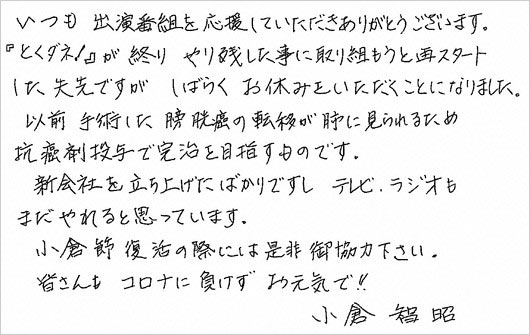 いつも 出演番組を応援していただきありがとうございます。
『とくダネ!』が 終り やり残した事に取り組もうと再スタート
した矢先ですが しばらく お休みをいただくことになりました。
以前 手術した 膀胱癌の転移が肺に見られるため
抗癌剤投与で完治を目指すものです。
新会社を立ち上げたばかりですし テレビ、ラジオも
まだやれると思っています。
小倉節復活の際には是非御協力下さい。
皆さんも コロナに負けず お元気で!!
小倉智昭